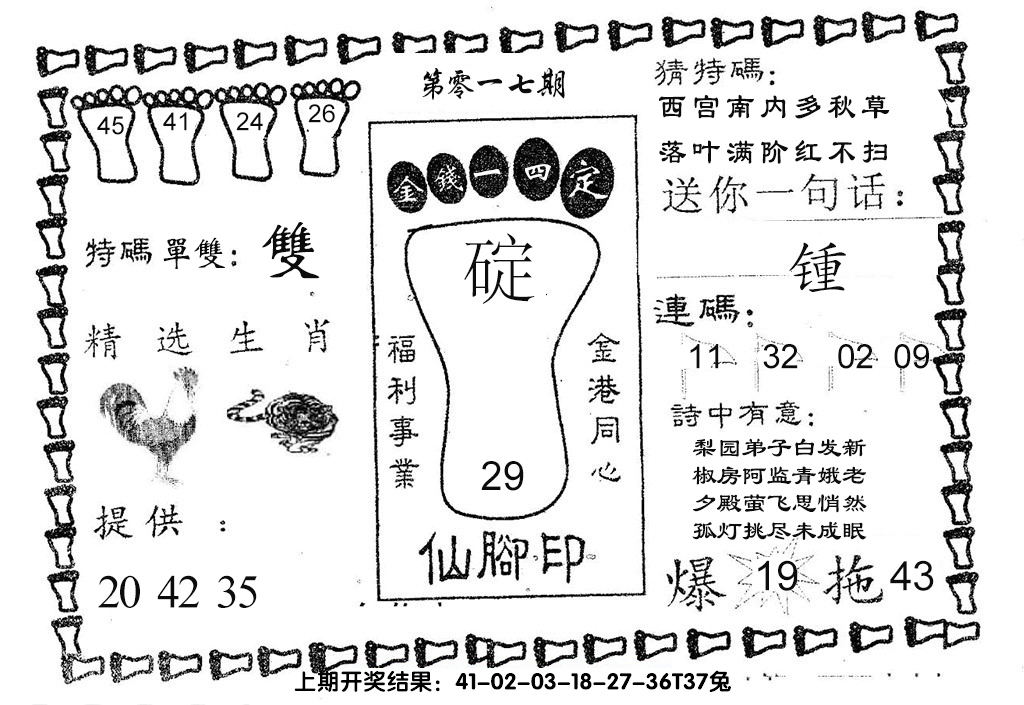 第零一七期
45 41 24 26
特碼單雙：雙
精选生肖
提供：
20 42 35
金錢一四定
碇
福利事業
金港同心
29
仙腳印
猜特碼：
西宫南内多秋草
落叶满阶红不扫
送你一句话：
锺
連碼：
11 32 02 09
詩中有意：
梨园弟子白发新
椒房阿监青娥老
夕殿萤飞思悄然
孤灯挑尽未成眠
爆 19 拖 43
上期开奖结果：41-02-03-18-27-36T37兔